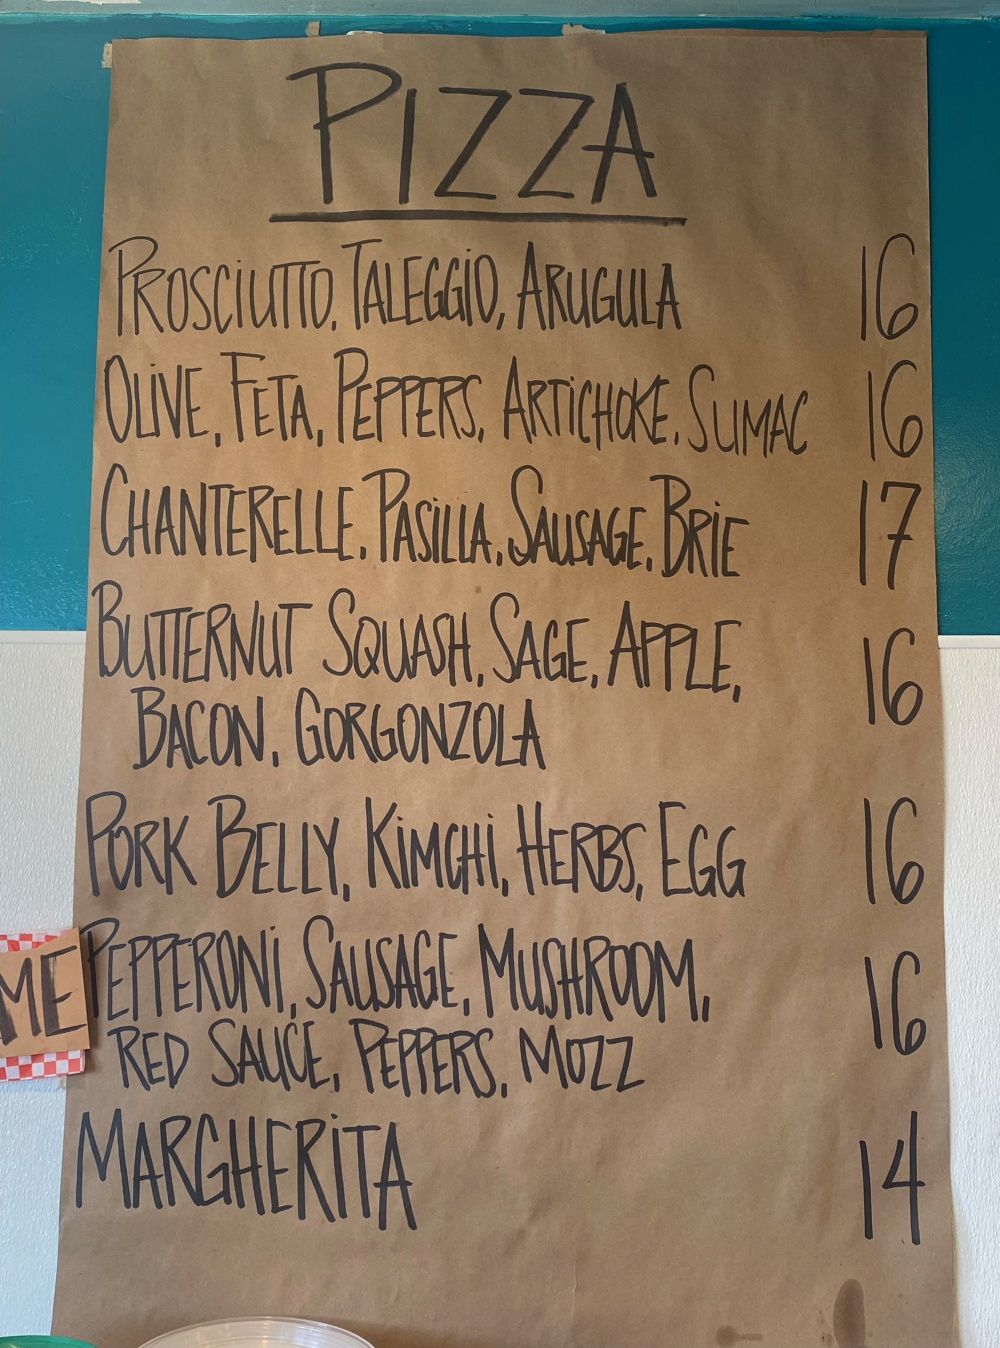 PIZZA
PROSCIUTTO, TALEGGIO, ARUGULA 16
OLIVE, FETA, PEPPERS, ARTICHOKE, SUMAC 16
CHANTERELLE, PASILLA, SAUSAGE, BRIE 17
BUTTERNUT SQUASH, SAGE, APPLE,
BACON, GORGONZOLA 16
PORK BELLY, KIMCHI, HERBS, EGG 16
PEPPERONI, SAUSAGE, MUSHROOM,
RED SAUCE, PEPPERS, MOZZ 16
MARGHERITA 14
ME